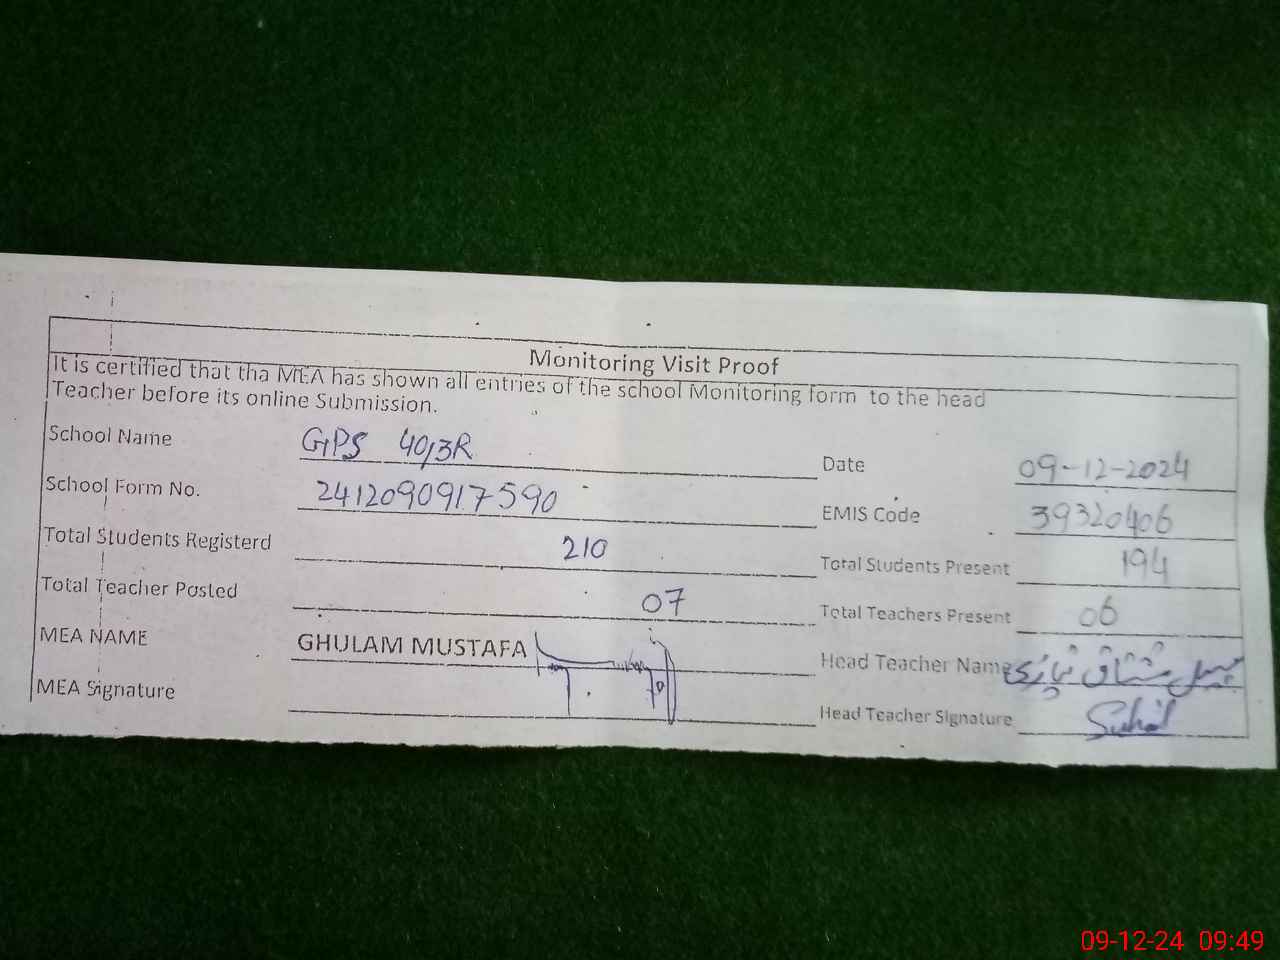 Monitoring Visit Proof
It is certified that tha MEA has shown all entries of the school Monitoring form to the head
Teacher before its online Submission.
School Name GPS 40/3R Date 09-12-2024
School Form No. 2412090917590 EMIS Code 39320406
Total Students Registerd 210 Total Students Present 194
Total Teacher Posted 07 Total Teachers Present 06
MEA NAME GHULAM MUSTAFA Head Teacher Name سہیل مشتاق نیازی
MEA Signature Head Teacher Signature Suhail
09-12-24 09:49